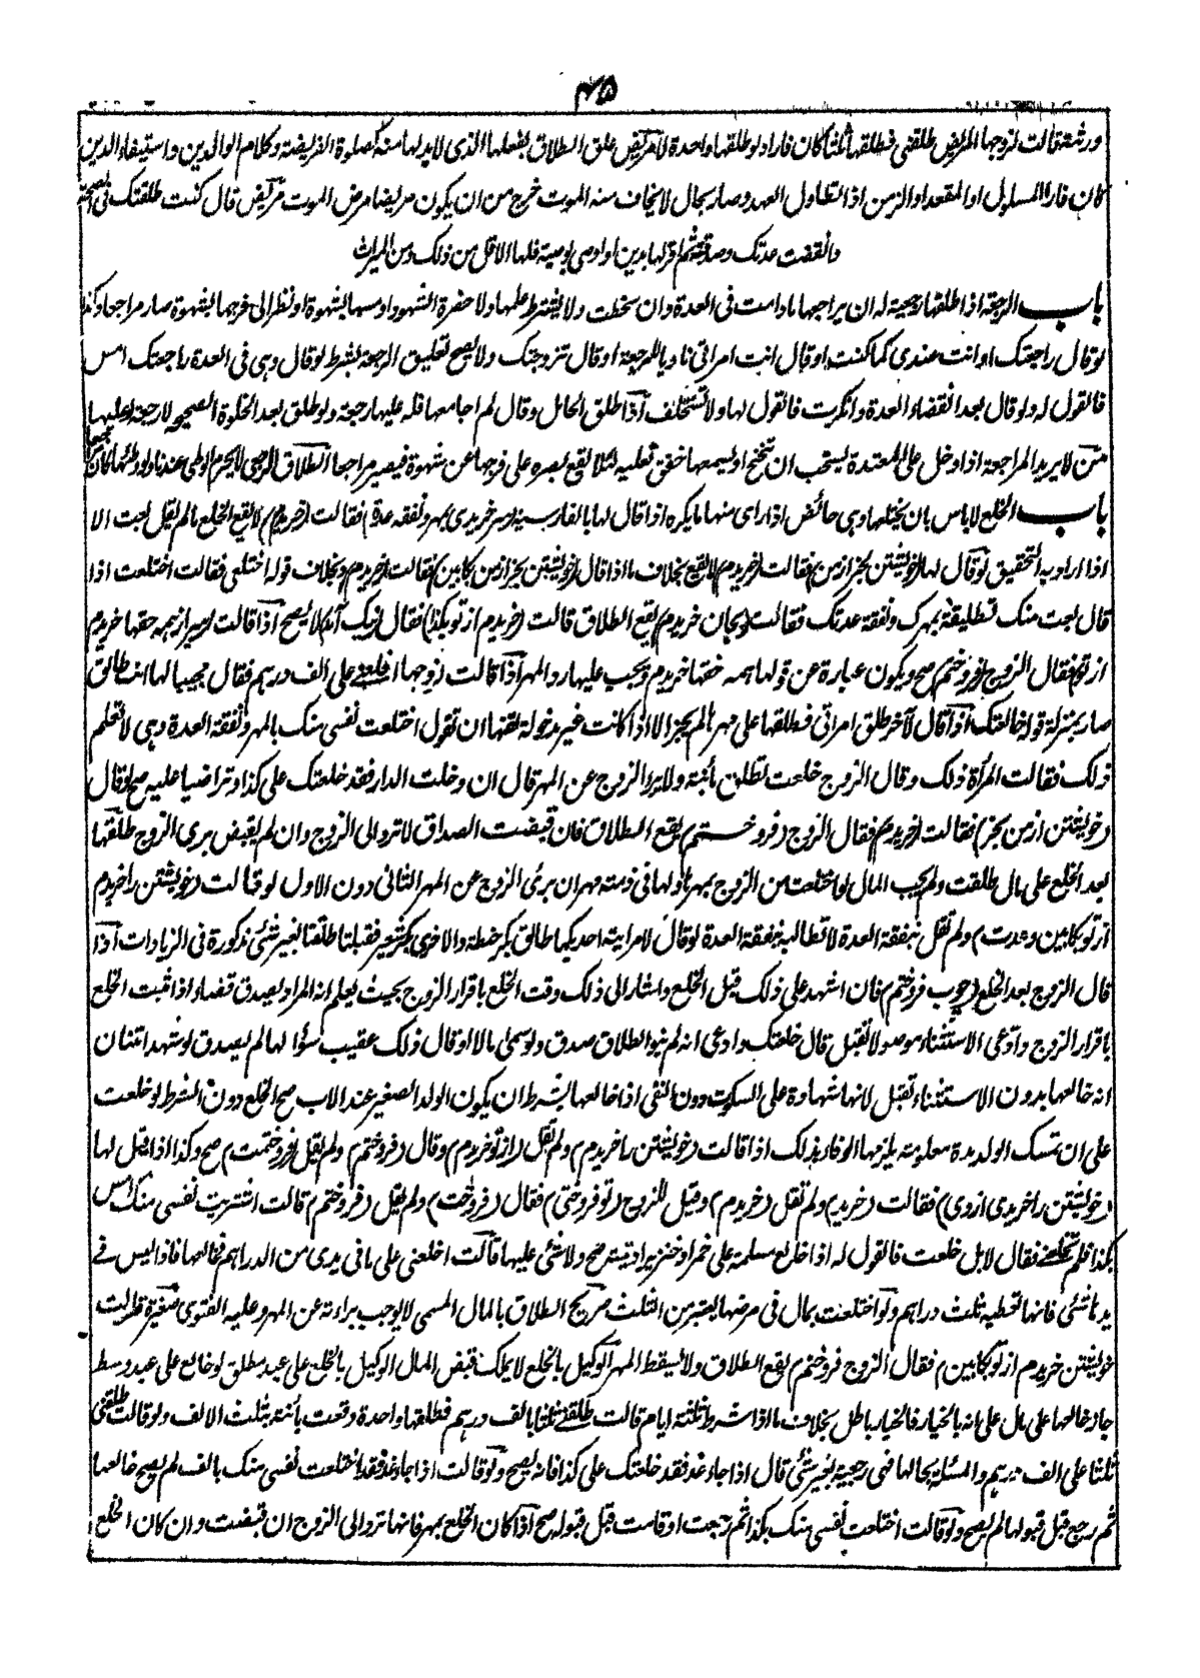 ٤٥
ورثته قالت لزوجها المريض طلقنى فطلقها ثلثا كان فارا ولو طلقها واحدة لا مريض علق الطلاق بفعلها الذى لا بد لها منه كصلوة الفريضة وكلام الوالدين واستيفاء الدين
كان فارا المسلول او المقعد او الزمن اذا تطاول العهد وصار بحال لا يخاف منه الموت خرج من ان يكون مريضا مرض الموت مريض قال كنت طلقتك فى الصحة
وانقضت عدتك وصدقته ثم اقر لها بدين او اوصى بوصية فلها الاقل من ذلك ومن الميراث
باب الرجعة اذا طلقها رجعية له ان يراجعها ما دامت فى العدة وان سخطت ولا يشترط علمها ولا حضرة الشهود او مسها بشهوة او نظر الى فرجها بشهوة صار مراجعا وكذا
لو قال راجعتك او انت عندى كما كنت او قال انت امرأتى ناويا للرجعة او قال تزوجتك ولا يصح تعليق الرجعة بشرط لو قال وهى فى العدة راجعتك امس
فالقول له ولو قال بعد انقضاء العدة وانكرت فالقول لها ولا تستحلف اذا طلق الحامل وقال لم اجامعها فله عليها رجعة ولو طلق بعد الخلوة الصحيحة لا رجعة له عليها
من لا يريد المراجعة اذا دخل على المعتدة يستحب ان يتنحنح او يسمعها خفق نعليه لئلا يقع بصره على فرجها عن شهوة فيصير مراجعا الطلاق الرجعى لا يحرم الوطى عندنا ولو وطئها كان مراجعا
باب الخلع لا باس بان يختلعها وهى حائض اذا راى منها ما يكره اذا قال لها بالفارسية سر خريدى بمهر ونفقه عدة فقالت (خريدم) لا يقع الخلع ما لم يقل بعت الا
اذا اراد به التحقيق لو قال لها (خويشتن بخر از من) فقالت (خريدم) لا يقع بخلاف ما اذا قال (خويشتن بخر از من بكابين) فقالت (خريدم) وبخلاف قوله اختلعى فقالت اختلعت اذا
قال بعت منك تطليقة بمهرك ونفقة عدتك فقالت (بجان خريدم) يقع الطلاق قالت (خريدم از تو بكذا) فقال (نيك آيد) لا يصح اذا قالت سر از همه حقها خريدم
از تو فقال الزوج (فروختم) صح ويكون عبارة عن قولها همه حقها خريدم ويجب عليها رد المهر اذا قالت لزوجها اخلعنى على الف درهم فقال مجيبا لها انت طالق
صار بمنزلة قوله خالعتك اذا قال لآخر طلق امرأتى فطلقها على مهرها لم يجز الا اذا كانت غير مدخولة لقنها ان تقول اختلعت نفسى منك بالمهر ونفقة العدة وهى لا تعلم
ذلك فقالت المرأة ذلك وقال الزوج خلعت تطلق بائنة ولا يبرأ الزوج عن المهر قال ان دخلت الدار فقد خلعتك على كذا وتراضيا عليه صح لو قال
(خويشتن از من بخر) فقالت (خريدم) فقال الزوج (فروختم) يقع الطلاق فان قبضت الصداق لا ترد الى الزوج وان لم يقبض برئ الزوج طلقها
بعد الخلع على مال طلقت ولم يجب المال لو اختلعت من الزوج بمهرها ولها فى ذمته مهران برئ الزوج عن المهر الثانى دون الاول لو قالت (خويشتن را خريدم
از تو بكابين وعدت) ولم تقل بنفقة العدة لا تطالب بنفقة العدة لو قال لامرأتيه احديكما طالق بكر حنطة والاخرى بكر شعير فقبلتا طلقتا بغير شئ مذكورة فى الزيادات اذا
قال الزوج بعد الخلع (چوب فروختم) فان اشهد على ذلك قبل الخلع واشار الى ذلك وقت الخلع باقرار الزوج بحيث يعلم انه المراد يصدق قضاء اذا ثبت الخلع
باقرار الزوج وادعى الاستثناء موصولا تقبل قال خلعتك وادعى انه لم ينو الطلاق صدق ولو سمى مالا او قال ذلك عقيب سؤالها لم يصدق لو شهد اثنان
انه خالعها بدون الاستثناء تقبل لانها شهادة على السكوت دون النفى اذا خالعها بشرط ان يكون الولد الصغير عند الاب صح الخلع دون الشرط لو خلعت
على ان تمسك الولد مدة معلومة يلزمها الوفاء بذلك اذا قالت (خويشتن را خريدم) ولم تقل (از تو خريدم) وقال (فروختم) ولم يقل (فروختمت) صح وكذا اذا قيل لها
(خويشتن را خريدى ازوى) فقالت (خريد) ولم تقل (خريدم) وقيل للزوج (تو فروختى) فقال (فروخت) ولم يقل (فروختم) قالت اشتريت نفسى منك امس
بكذا فلم تخلعنى فقال لا بل خلعت فالقول له اذا خلع مسلمة على خمر او خنزير او ميتة صح ولا شئ عليها قالت اخلعنى على ما فى يدى من الدراهم فخالعها فاذا ليس فى
يدها شئ فانها تعطيه ثلث دراهم ولو اختلعت بمال فى مرضها يعتبر من الثلث صريح الطلاق بالمال المسمى لا يوجب براءته عن المهر وعليه الفتوى صغيرة قالت
خويشتن خريدم از تو بكابين) فقال الزوج فروختم) يقع الطلاق ولا يسقط المهر الوكيل بالخلع لا يملك قبض المال الوكيل بالخلع على عبد مطلق لو خالع على عبد وسط
جاز خالعها على مال على انه بالخيار فالخيار باطل بخلاف ما اذا شرط ثلثة ايام قالت طلقنى ثلثا بالف درهم فطلقها واحدة وقعت بائنة بثلث الالف ولو قالت طلقنى
ثلثا على الف درهم والمسئلة بحالها فهى رجعية بغير شئ قال اذا جاء غد فقد خلعتك على كذا فانه يصح ولو قالت اذا جاء غد فقد اختلعت نفسى منك بالف لم يصح خالعها
ثم رجع قبل قبولها لم يصح ولو قالت اختلعت نفسى منك بكذا ثم رجعت او قامت قبل قبوله صح اذا كان الخلع بمهر فانها ترد الى الزوج ان قبضت وان كان الخلع